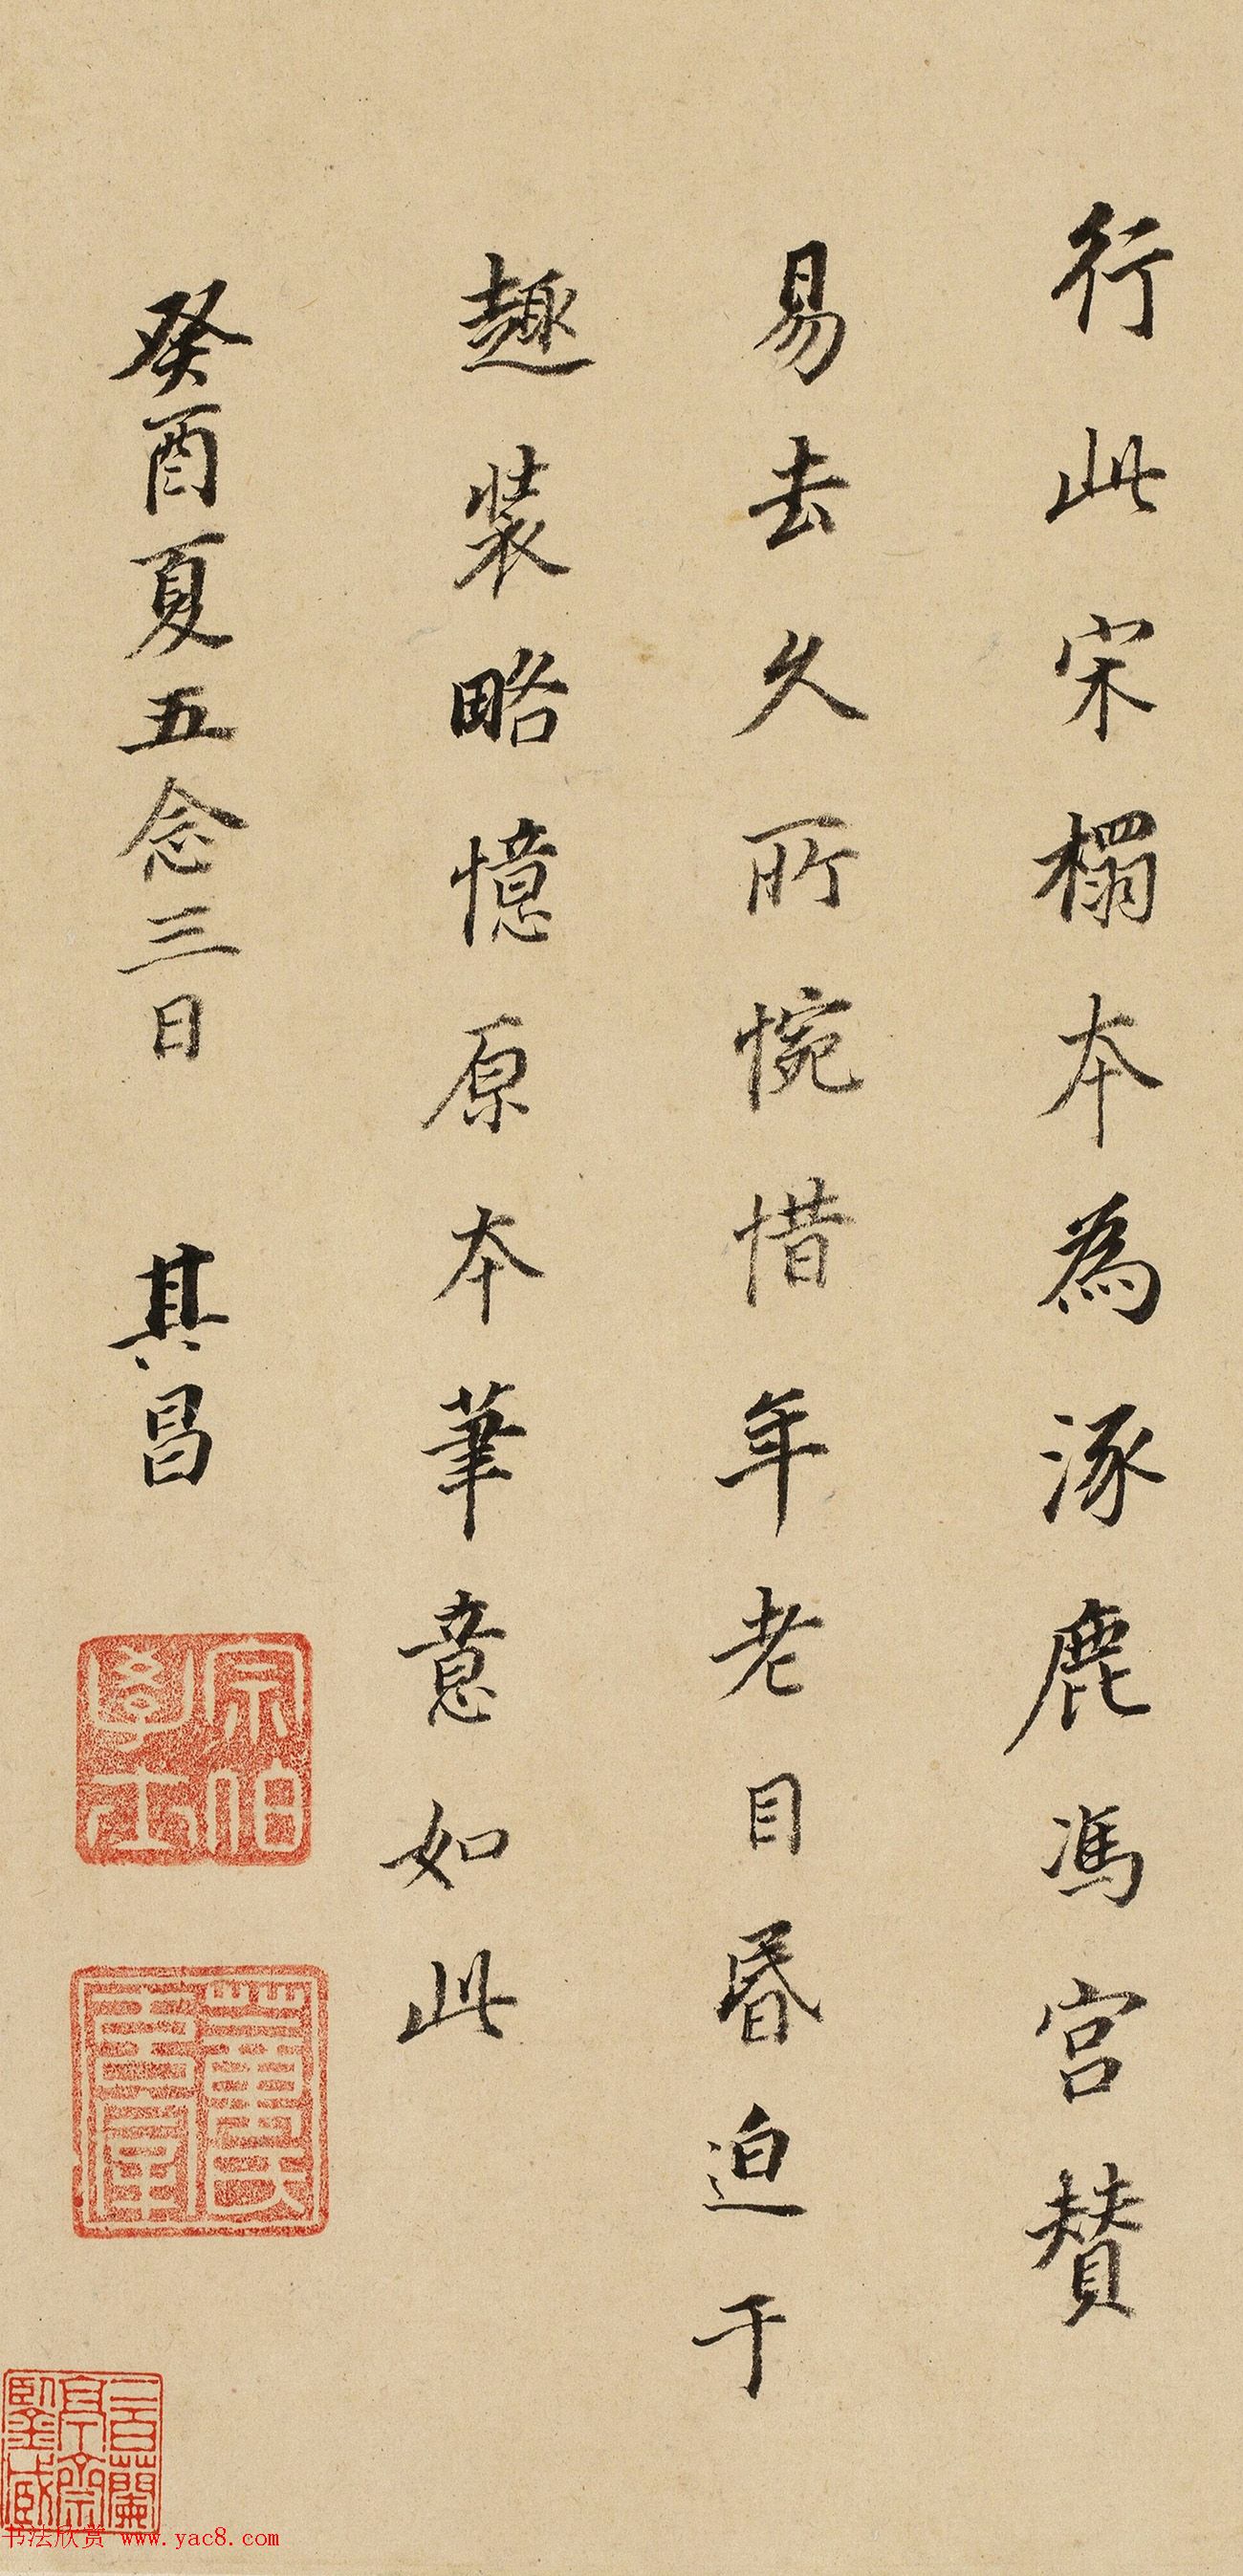 行此宋榻本為涿鹿馮宮贊
易去久所惋惜年老目昏迫于
趣裝略憶原本筆意如此
癸酉夏五念三日 其昌
宗伯學士
董氏玄宰
三百蘭亭齋鑒藏
书法欣赏 www.yac8.com